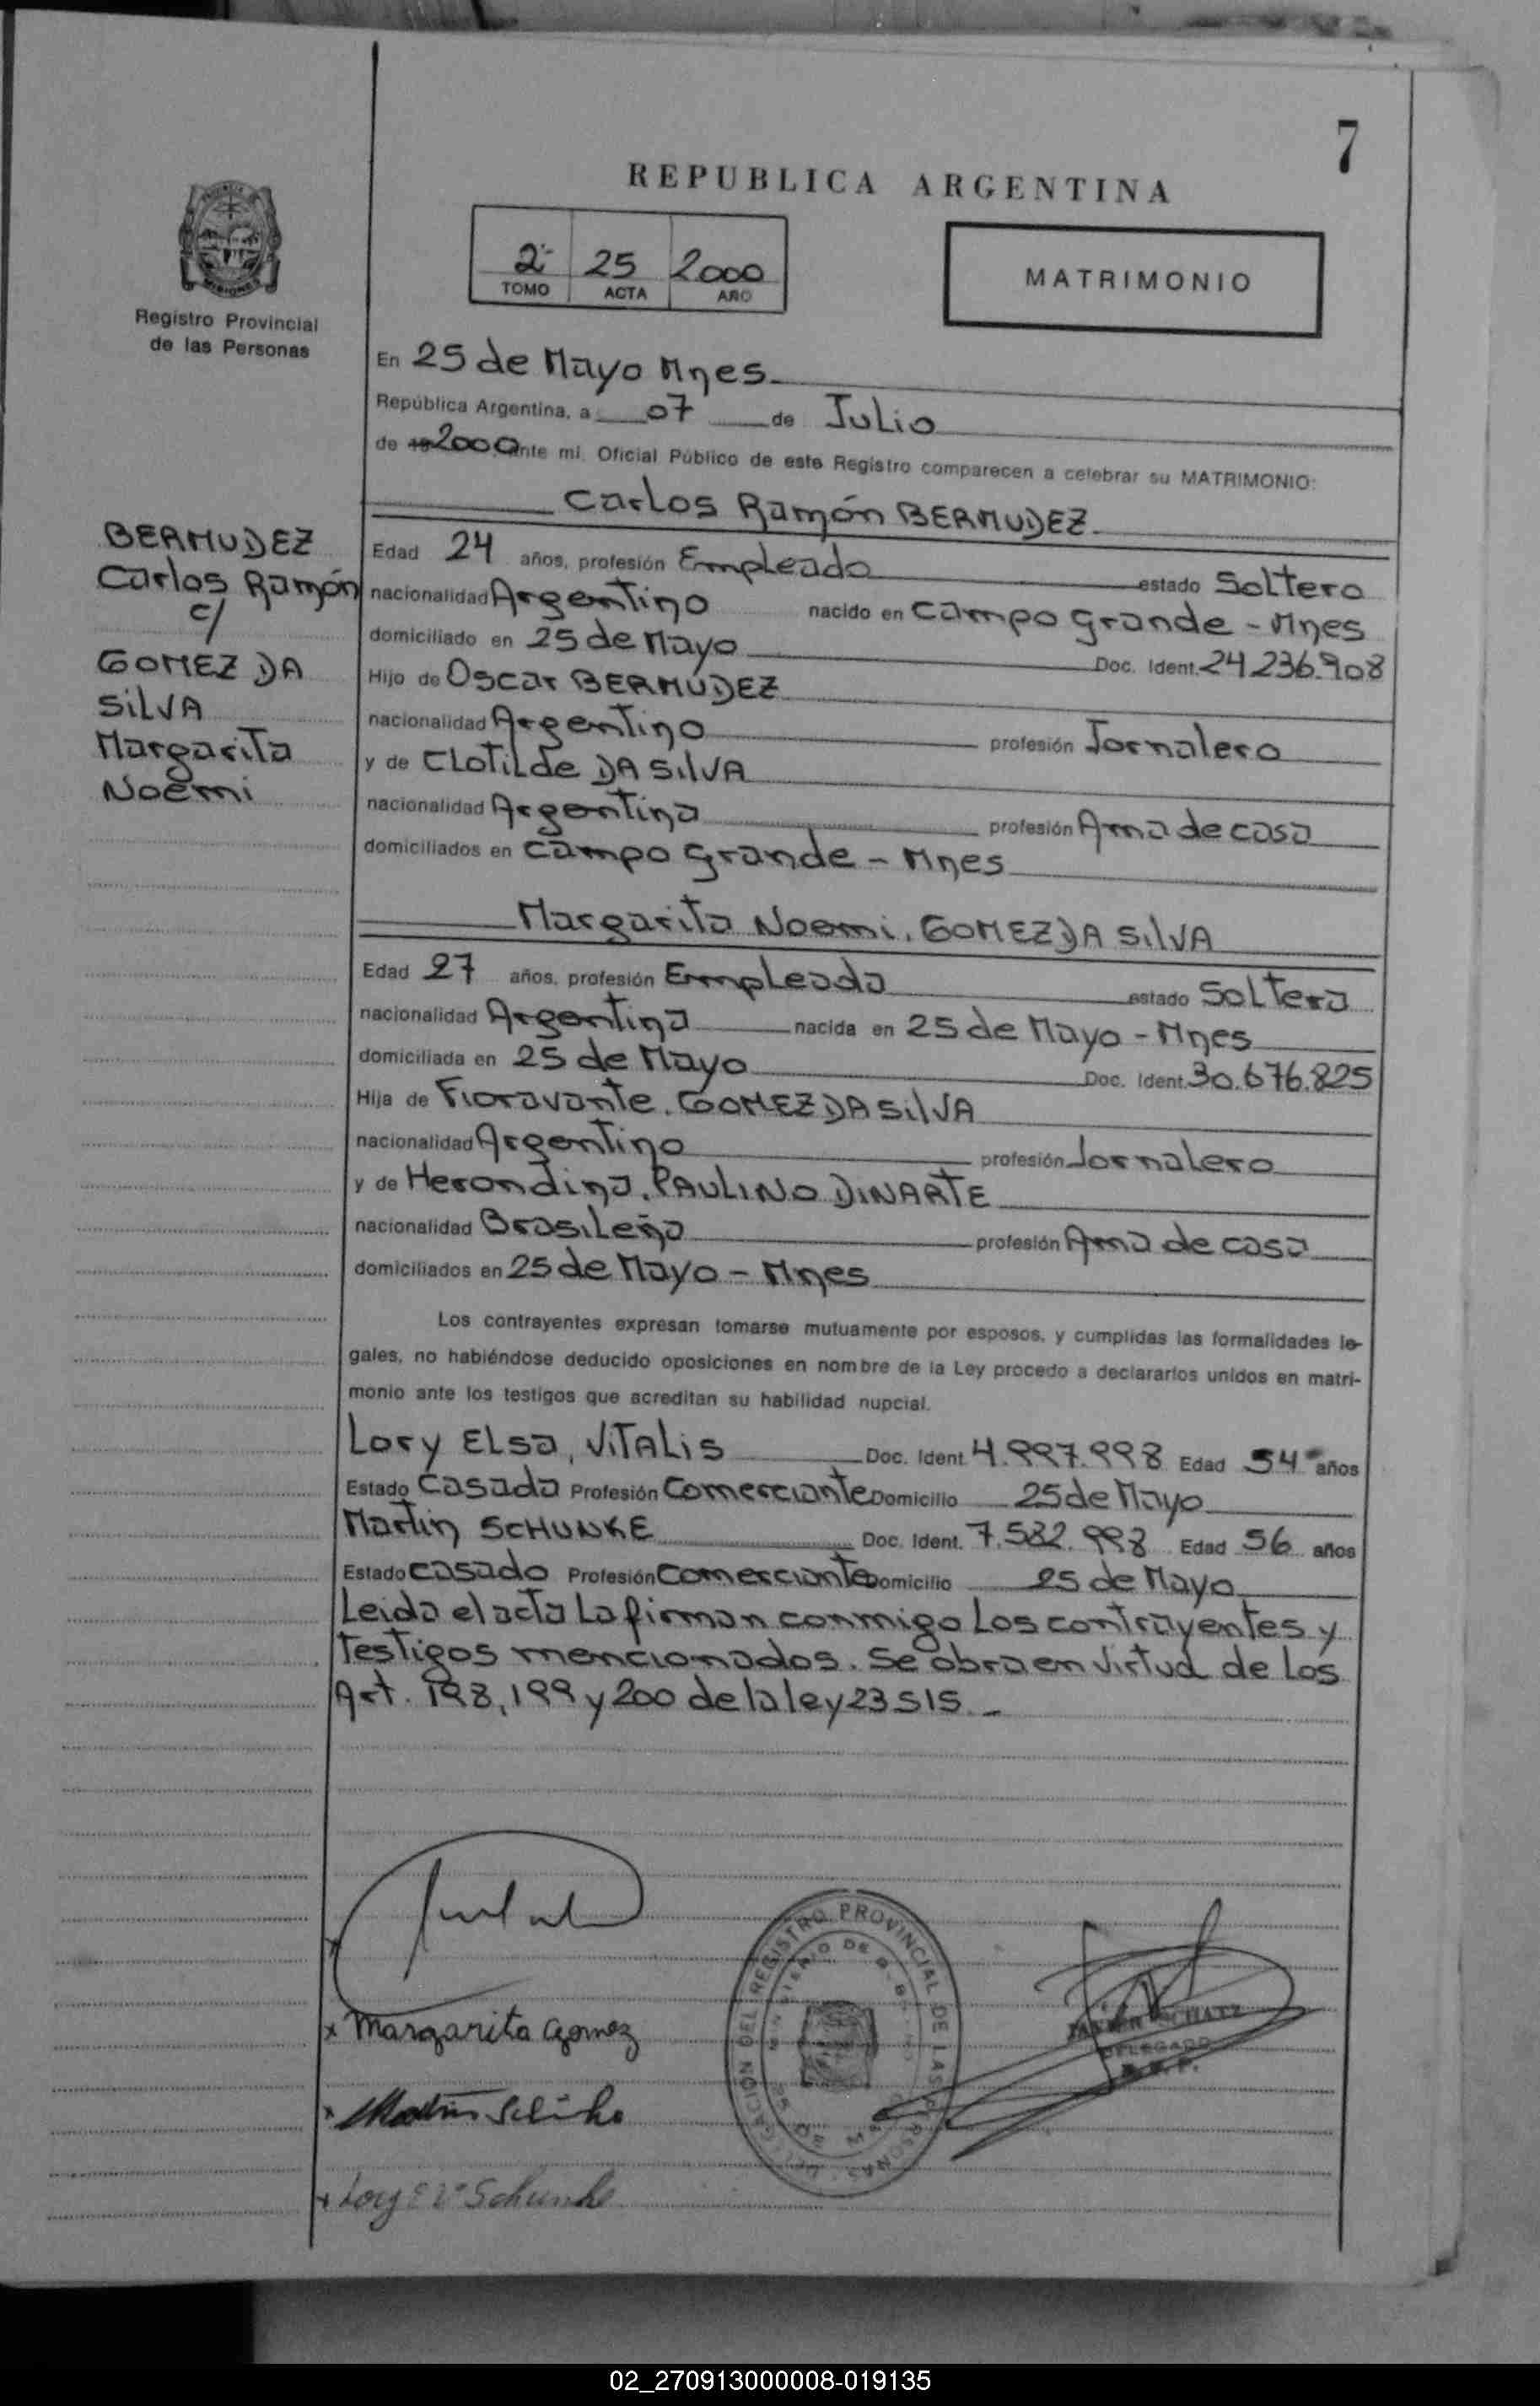 7
REPUBLICA ARGENTINA
2- 25 2000
TOMO ACTA AÑO
MATRIMONIO
Registro Provincial
de las Personas
En 25 de Mayo Mnes
República Argentina, a 07 de Julio
de 19 2000 ante mí, Oficial Público de este Registro comparecen a celebrar su MATRIMONIO:
Carlos Ramón BERMUDEZ
BERMUDEZ
Carlos Ramón
c/
GOMEZ DA
SILVA
Margarita
Noemi
Edad 24 años, profesión Empleado estado Soltero
nacionalidad Argentino nacido en Campo Grande - Mnes
domiciliado en 25 de Mayo Doc. Ident. 24.236.908
Hijo de Oscar BERMÚDEZ
nacionalidad Argentino profesión Jornalero
y de CLOTILDE DA SILVA
nacionalidad Argentina profesión Ama de casa
domiciliados en Campo Grande - Mnes
Margarita Noemi, GOMEZ DA SILVA
Edad 27 años, profesión Empleada estado Soltera
nacionalidad Argentina nacida en 25 de Mayo - Mnes
domiciliada en 25 de Mayo Doc. Ident. 30.676.825
Hija de Fioravante, GOMEZ DA SILVA
nacionalidad Argentino profesión Jornalero
y de Herondina, PAULINO DINARTE
nacionalidad Brasileña profesión Ama de casa
domiciliados en 25 de Mayo - Mnes
Los contrayentes expresan tomarse mutuamente por esposos, y cumplidas las formalidades le-
gales, no habiéndose deducido oposiciones en nombre de la Ley procedo a declararlos unidos en matri-
monio ante los testigos que acreditan su habilidad nupcial.
Lory ELSA, VITALIS Doc. Ident. 4.997.998 Edad 54 años
Estado Casada Profesión Comerciante Domicilio 25 de Mayo
Martin SCHUNKE Doc. Ident. 7.582.998 Edad 56 años
Estado Casado Profesión Comerciante Domicilio 25 de Mayo
Leida el acta La firman conmigo Los contrayentes y
testigos mencionados. Se obra en virtud de Los
Art. 198, 199 y 200 de la ley 23515.-
DELEGACION DEL REGISTRO PROVINCIAL DE LAS PERSONAS
x Margarita Gomez
DELEGADO
x Lory E V Schunke
02_270913000008-019135